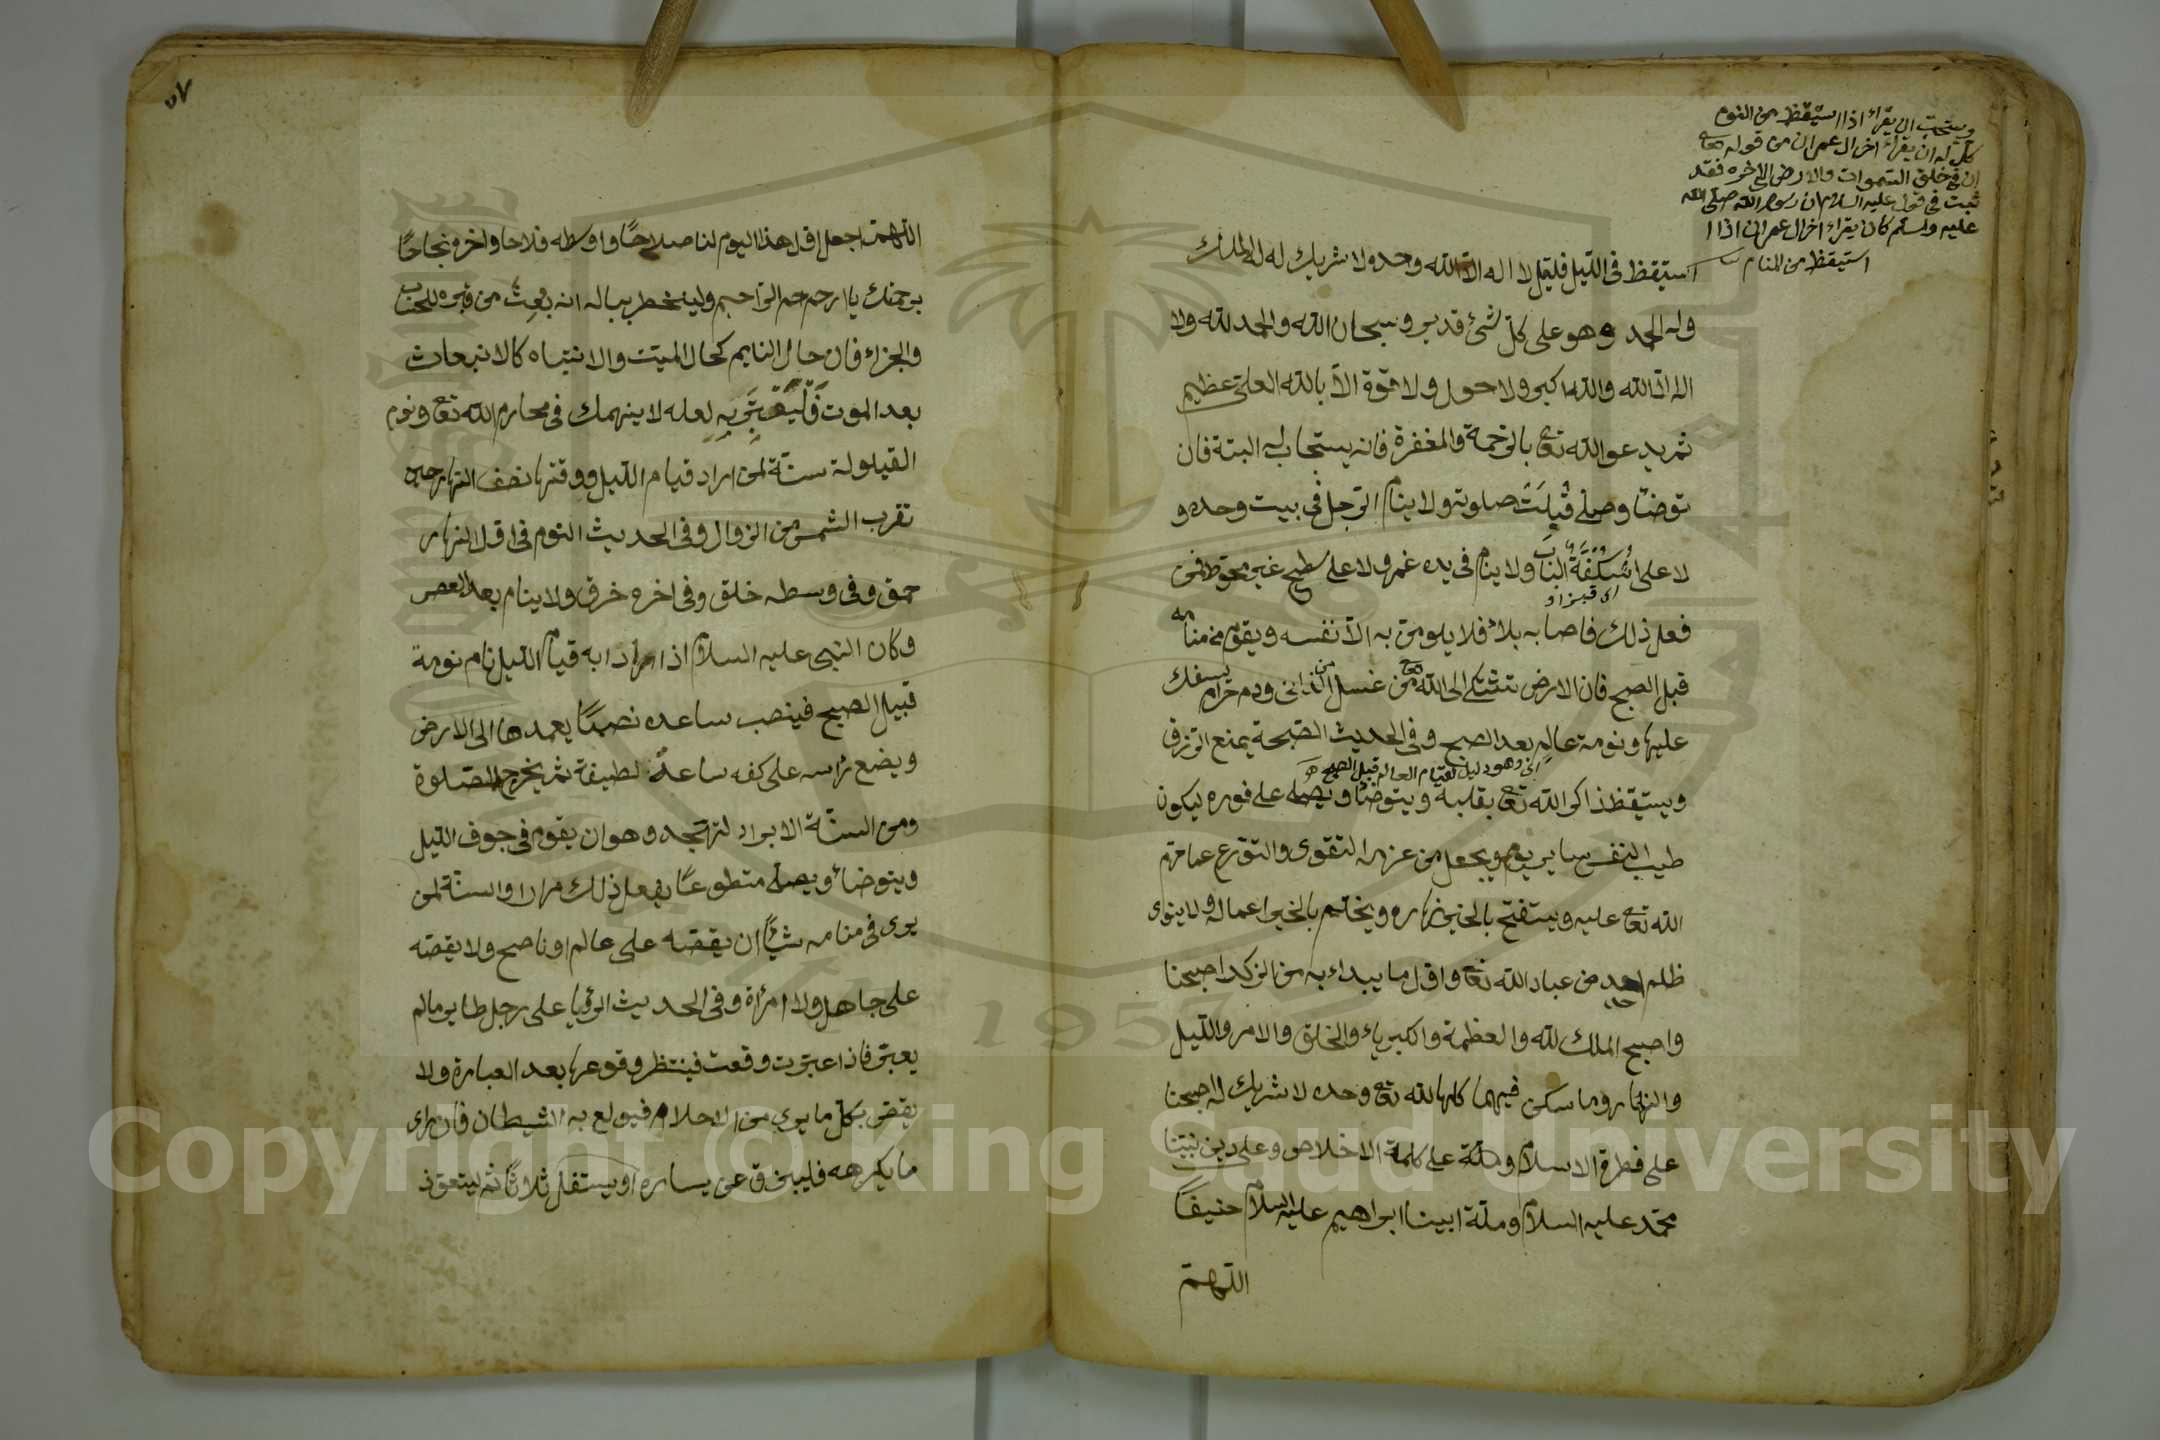 ويستحب ان يقراء اذا استيقظ من النوم
كل له ان يقراء اخر ال عمران من قوله تعا
ان في خلق السموات والارض الى اخره فقد
ثبت في قول عليه السلام ان رسول الله صلى الله
عليه وسلم كان يقراء اخر ال عمران اذا ا
استيقظ من المنام
استيقظ في الليل فليقل لا اله الا الله وحده لا شريك له له الملك
وله الحمد وهو على كل شئ قدير وسبحان الله والحمد لله ولا
اله الا الله والله اكبر ولا حول ولا قوة الا بالله العلي عظيم
ثم يدعو الله تعا بالرحمة والمغفرة فانه يستجاب له البتة فان
توضا وصلى قبلت صلوته ولا ينام الرجل في بيت وحده و
لا على اسكفة الباب ولا ينام في يده غمر ولا على سطح غير محوط فمن
فعل ذلك فاصابه بلاء فلا يلومن به الا نفسه ويقوم من منامه
قبل الصبح فان الارض تشتكي الى الله تعا من غسل الزاني ودم حرام يسفك
عليها ونومة عالم بعد الصبح وفي الحديث الصبحة يمنع الرزق
ويستيقظ ذاكر الله تعا بقلبه ويتوضا ويصلي على فوره ليكون
طيب النفس ساير يومه ويجعل من عزمه التقوى والتورع عما حرم
الله تعا عليه ويستفتح بالخير نهاره ويختم بالخير اعماله ولا ينوى
ظلم احد من عباد الله تعا واول ما يبداء به من الذكر اصبحنا
واصبح الملك لله والعظمة والكبرياء والخلق والامر والليل
والنهار وما سكن فيهما كلها لله تعا وحده لا شريك له اصبحنا
على فطرة الاسلام وعلى كلمة الاخلاص وعلى دين نبينا
محمد عليه السلام وملة ابينا ابراهيم عليه السلام حنيفا
اللهم
٥٧
اللهم اجعل اول هذا اليوم لنا صلاحا واوسطه فلاحا واخره نجاحا
برحمتك يا ارحم الراحمين وليخطر بباله انه بعث من قبره للحساب
والجزاء فان حال النايم كحال الميت والانتباه كالانبعاث
بعد الموت فليعتبر به لعله لا ينهمك في محارم الله تعا ونوم
القيلولة سنة لمن اراد قيام الليل ووقتها نصف النهار حين
تقرب الشمس من الزوال وفي الحديث النوم في اول النهار
حمق وفي وسطه خلق وفي اخره خرق ولا ينام بعد العصر
وكان النبي عليه السلام اذا اراد به قيام الليل نام نومة
قبيل الصبح فينصب ساعده نصبا يعمدها الى الارض
ويضع راسه على كفه ساعة لطيفة ثم يخرج للصلوة
ومن السنة الابراد لتهجد وهو ان يقوم في جوف الليل
ويتوضاء ويصلى متطوعا يفعل ذلك مرارا والسنة لمن
يرى في منامه شيئا ان يقصه على عالم او ناصح ولا يقصه
على جاهل ولا امرأة وفي الحديث الرؤيا على رجل طاير مالم
يعبر فاذا عبرت وقعت فينتظر وقوعها بعد العبارة ولا
يقص بكل ما يرى من الاحلام فيولع به الشيطان فان راى
ما يكرهه فليبزق عن يساره او يستفل ثلاثا ثم ليتعوذ